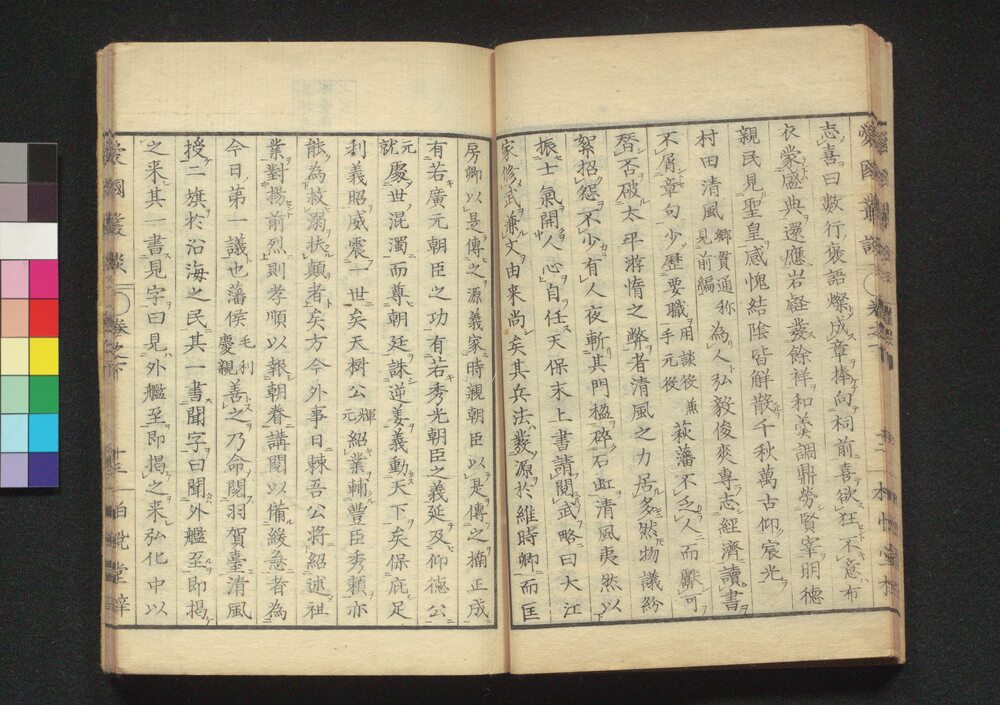 志喜曰數行褒語燦成章捧向祠前喜欲狂不意布
衣蒙盛典還應岩穴發餘祥和羹調鼎勞賢宰明德
親民見聖皇感愧結陰皆解散千秋萬古仰宸光
村田清風郷貫通称見前編為人弘毅俊爽專志經濟讀書
不屑章句少歷要職用談役兼手元役萩藩不乏人而獻可
替否破太平游惰之弊者清風之力居多然物議紛
絮招怨不少有人夜斬其門楹碎石缸清風夷然以
振士氣開人心自任天保末上書請閱武略曰大江
家修武兼文由来尚矣其兵法發源於維時卿而匡
房卿以是傳之源義家時親朝臣以是傳之楠正成
有若廣元朝臣之功有若秀光朝臣之義延及仰德公
元就慶世混濁而尊朝廷誅逆姜義動天下矣保庇足
利義昭威震一世矣天樹公輝元紹業輔豐臣秀賴亦
能為救溺扶顛者矣方今外事日棘吾公將紹述祖
業對揚前烈則孝順以報朝眷講閱以備緩急者為
今日第一議也藩侯毛利慶親善之乃命閱羽賀臺清風
授二旗於沿海之民其一書聞字曰聞外艦至即揭
之来其一書見字曰見外艦至即揭之来弘化中以
愛國叢談 卷之下 十三